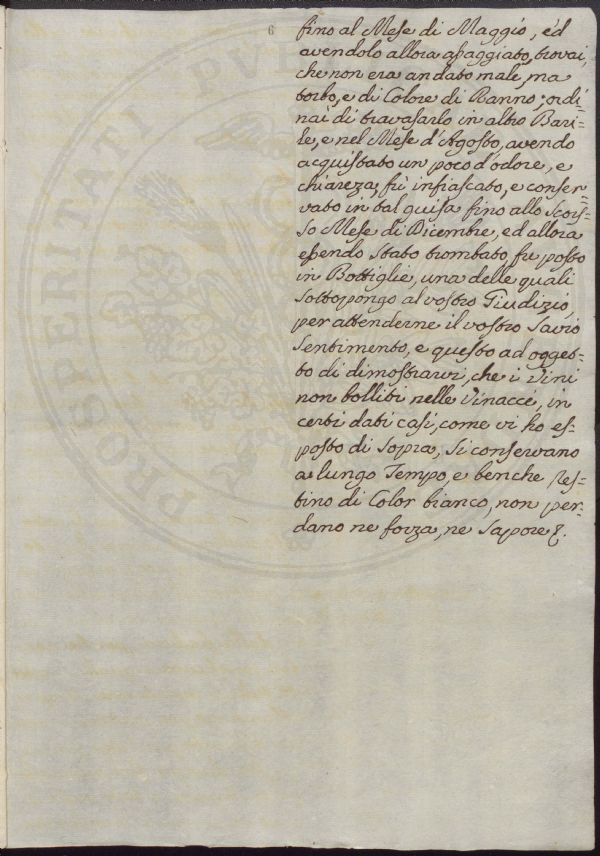 6
fino al Mese di Maggio, ed
avendolo allora assaggiato, trovai,
che non era andato male, ma
torbo, e di Colore di Ranno; ordi=
nai di travasarlo in altro Bari=
le, e nel Mese d'Agosto, avendo
acquistato un poco d'odore, e
chiareza, fù infiascato, e conser=
vato in tal guisa fino allo scor=
so Mese di Dicembre, ed allora
essendo stato trombato, fu posto
in Bottiglie, una delle quali
sottopongo al vostro Giudizio,
per attenderne il vostro Savio
Sentimento, e questo ad ogget=
to di dimostrarvi, che i Vini
non bolliti nelle Vinacce, in
certi dati casi, come vi ho es=
posto di sopra, si conservano
a lungo Tempo, e benche res=
tino di Color bianco, non per=
dano ne forza, ne Sapore.
PROSPERITATI PVBL